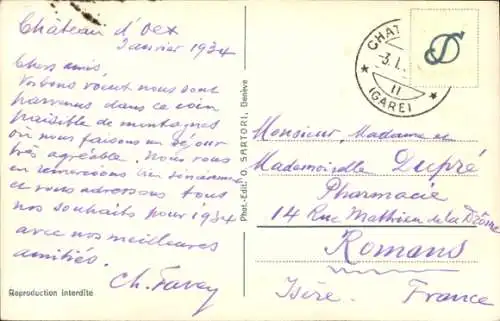 Château d'Oex
3 janvier 1934
Chers amis,
Vos bons voeux nous sont
parvenus dans ce coin
paisible de montagnes
où nous faisons un séjour
très agréable. Nous vous
en remercions bien sincèrement
et vous adressons tous
nos souhaits pour 1934
avec nos meilleures
amitiés.
Ch. Favey
Reproduction interdite
Phot.-Edit. O. SARTORI, Genève
CHAT
-3.I.
II
(GARE)
Monsieur, Madame et
Mademoiselle Dupré
Pharmacie
14 Rue Mathieu de la Drôme
Romans
Isère. France